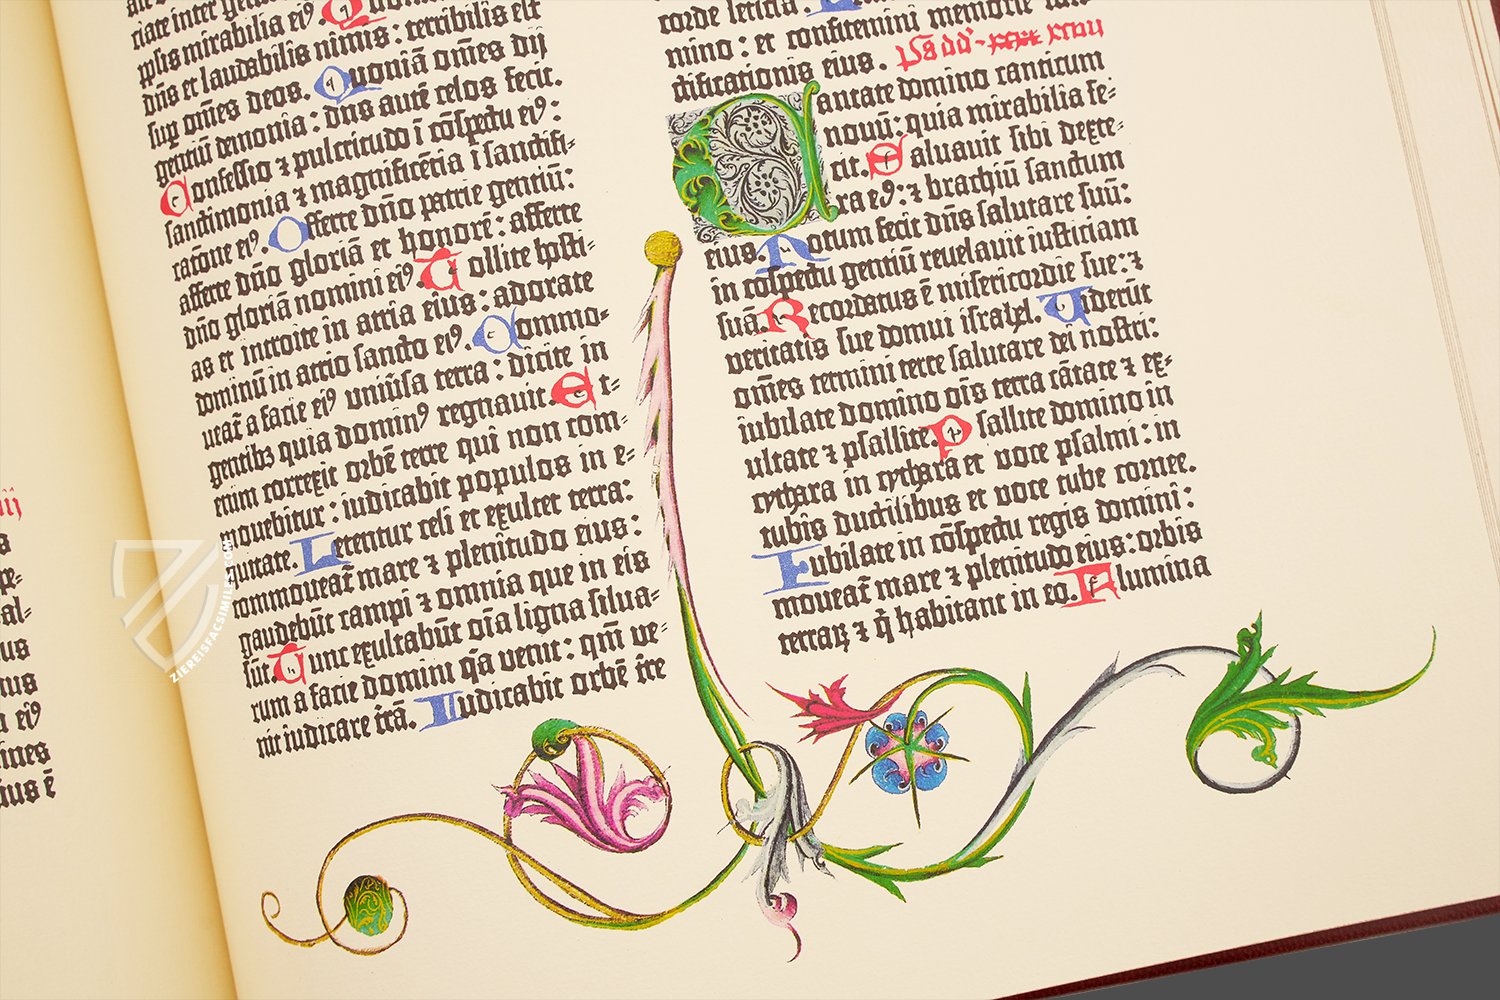 plis mirabilia ei⁹. Quoniā
dñs et laudabilis nimis: terribilis est
sup omēs deos. Quoniā omēs dij
gentiū demonia: dñs autē celos fecit.
Confessio ⁊ pulcritudo ī cōspectu ei⁹:
sanctimonia ⁊ magnificētia ī sanctifi-
catōne ei⁹. Offerte dño patrie gentiū:
afferte dño gloriā et honorē: afferte
dño gloriā nomini ei⁹. Tollite hosti-
as et introite in atria eius: adorate
dominū in atrio sancto ei⁹. Commo-
ueat̄ a facie ei⁹ uniūsa terra: dicite in
gentibꝫ quia domin⁹ regnauit. Et-
enim correxit orbē terre qui non com-
mouebitur: iudicabit populos in e-
quitate. Letentur celi et exultet terra:
commoueat̄ mare ⁊ plenitudo eius:
gaudebūt campi ⁊ omnia que in eis
sūt. Tunc exultabūt oīa ligna silua-
rum a facie domini q̄a venit: qm̄ ve-
nit iudicare trā. Iudicabit orbē tre
corde leticia.
mino: et confitemini memorie sanc-
tificationis eius. Ps dd xcvii
Cantate domino canticum
nouū: quia mirabilia fe-
cit. Saluauit sibi dexte-
ra e⁹: ⁊ brachiū sanctum
eius. Notum fecit dñs salutare suū:
in cōspectu gentiū reuelauit iusticiam
suā. Recordatus ē misericordie sue: ⁊
veritatis sue domui israhel. Uiderūt
omēs termini terre salutare dei nostri:
iubilate domino oīs terra cātate ⁊ ex-
ultate ⁊ psallite. Psallite domino in
cythara in cythara et voce psalmi: in
tubis ductilibus et voce tube cornee.
Iubilate in cōspectu regis domini:
moueat̄ mare ⁊ plenitudo eius: orbis
terraꝝ ⁊ q̄ habitant in eo. Flumina
ZIEREISFACSIMILES.COM